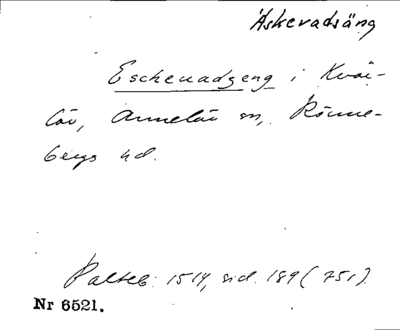 Äskevadsäng
Escheuadzeng i Kvär-
löv, Annelöv sn, Rönne-
bergs hd.
Palteb. 1514, sid. 189 (751).
Nr 6521.